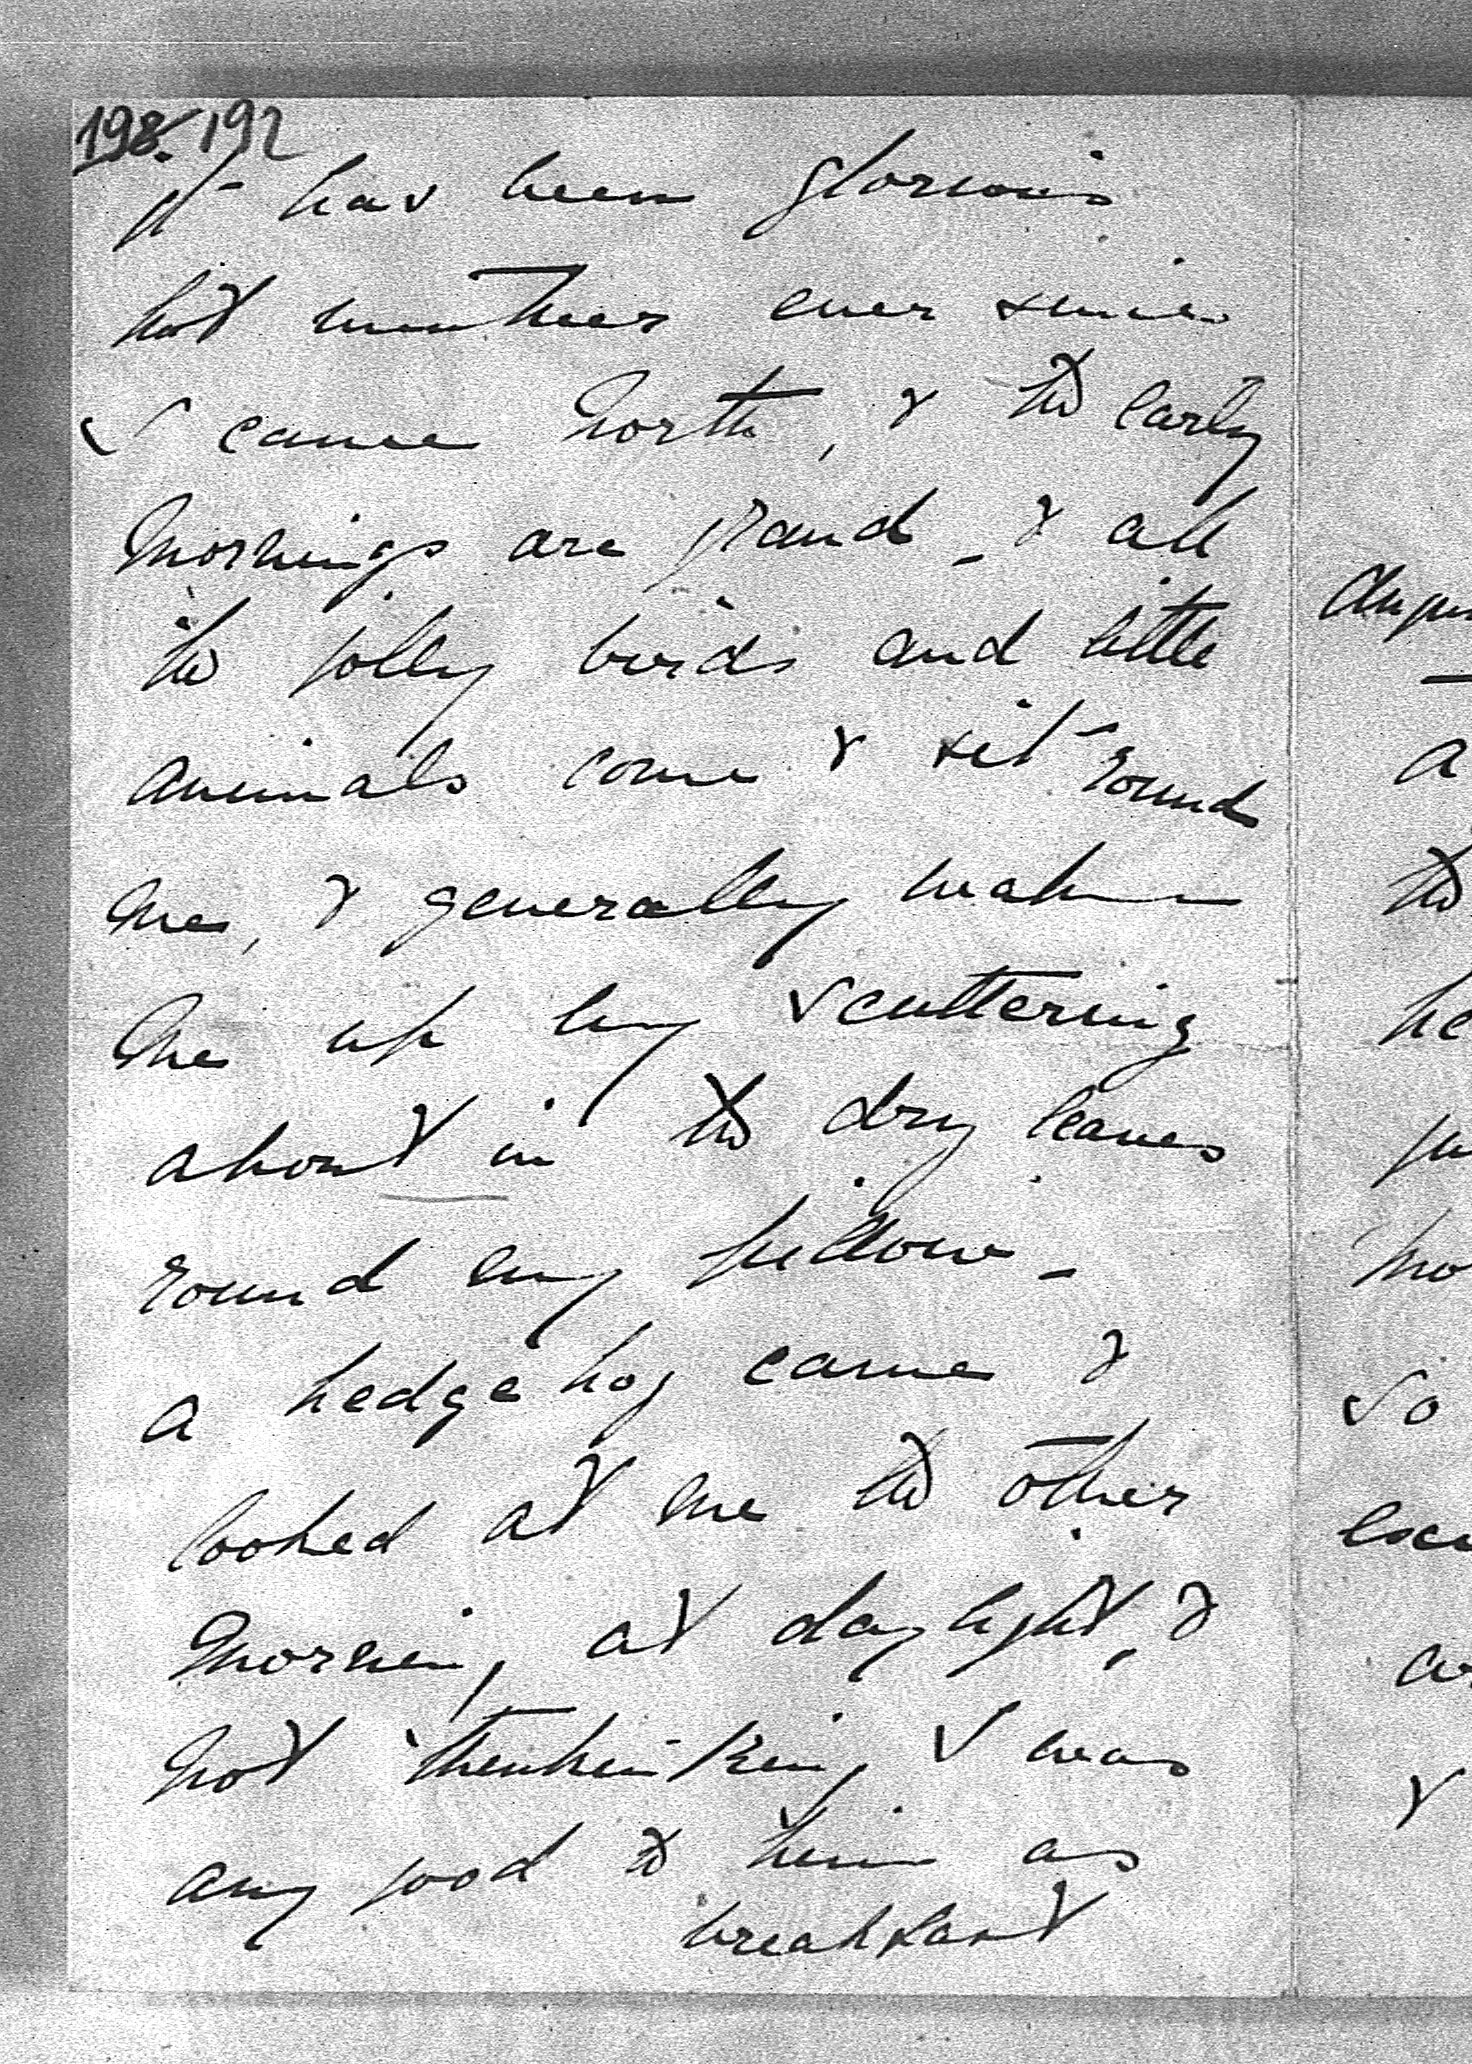 198. 192
It has been glorious
hot weather ever since
I came North, & the early
mornings are grand - & all
the jolly birds and little
animals come & sit round
me, & generally wake
me up by scuttering
about in the dry leaves
round my pillow -
a hedgehog came &
looked at me the other
morning, at daylight, &
not thinking I was
any good to him as
breakfast
a
the
he
so
&